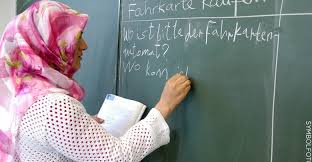 Fahrkarte kaufen
Wo ist bitte der Fahrkarten-
automat?
Wo kann i
SYMBOLFOTO